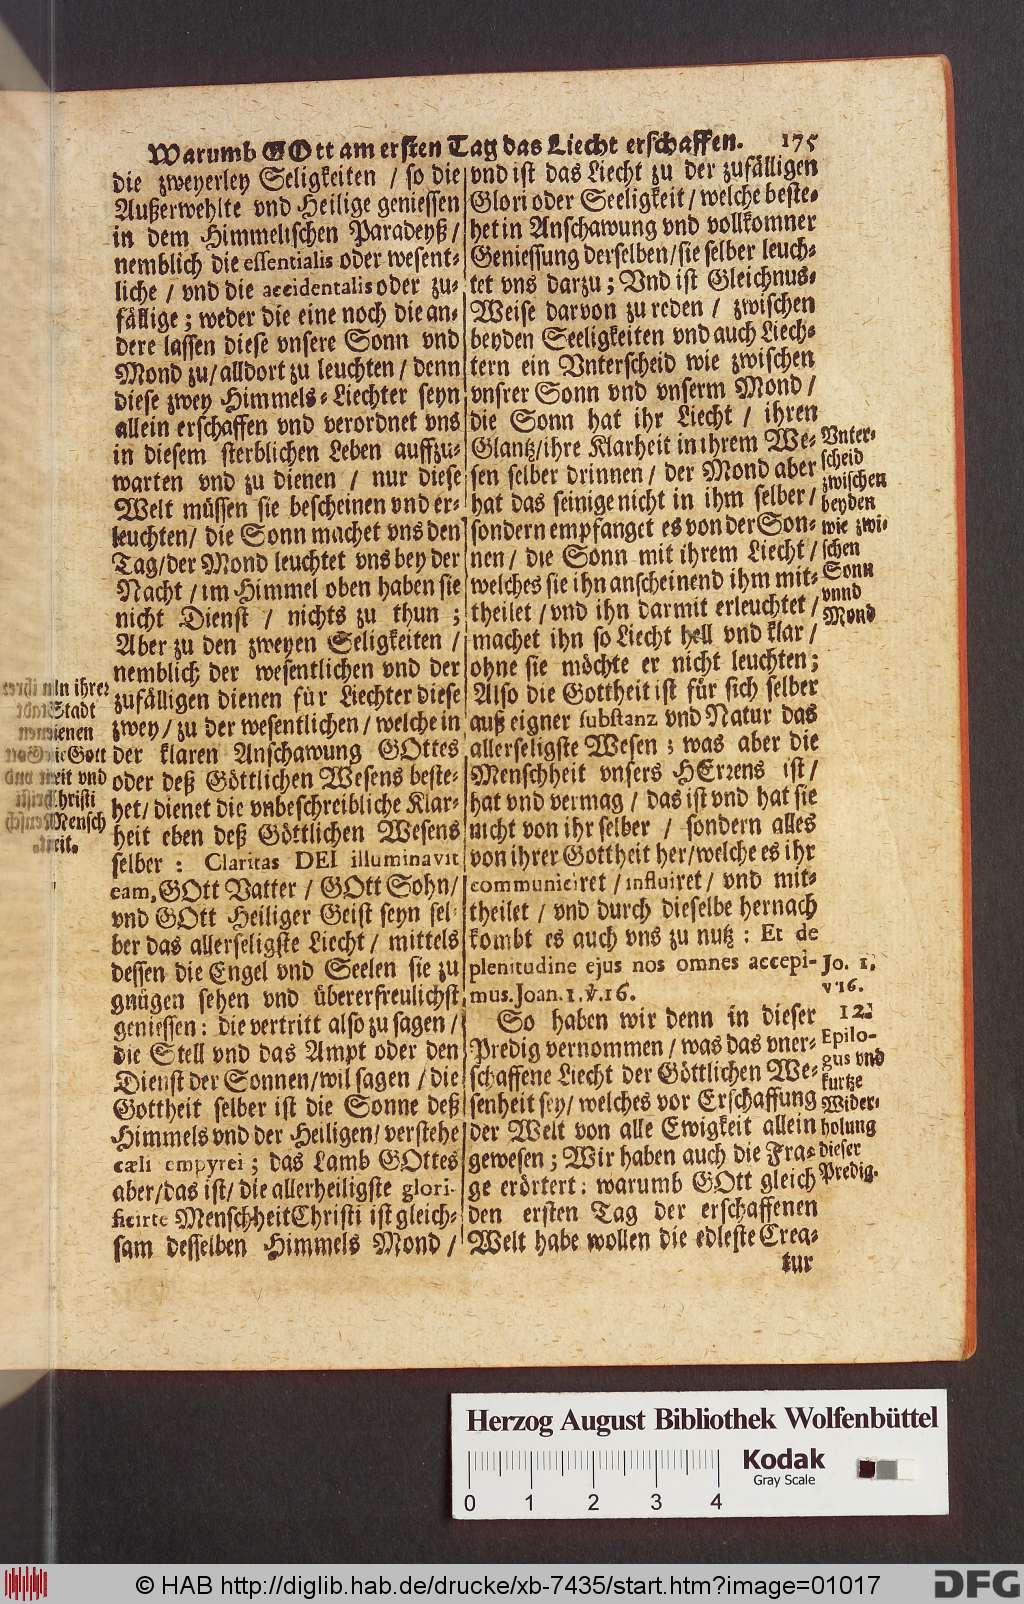 Warumb GOtt am ersten Tag das Liecht erschaffen. 175
die zweyerley Seligkeiten / so die
Außerwehlte vnd Heilige geniessen
in dem Himmelischen Paradeyß /
nemblich die essentialis oder wesent-
liche / vnd die accidentalis oder zu-
fällige; weder die eine noch die an-
dere lassen diese vnsere Sonn vnd
Mond zu / alldort zu leuchten / denn
diese zwey Himmels-Liechter seyn
allein erschaffen vnd verordnet vns
in diesem sterblichen Leben auffzu-
warten vnd zu dienen / nur diese
Welt müssen sie bescheinen vnd er-
leuchten / die Sonn machet vns den
Tag / der Mond leuchtet vns bey der
Nacht / im Himmel oben haben sie
nicht Dienst / nichts zu thun;
Aber zu den zweyen Seligkeiten /
nemblich der wesentlichen vnd der
zufälligen dienen für Liechter diese
zwey / zu der wesentlichen / welche in
der klaren Anschawung GOttes
oder deß Göttlichen Wesens beste-
het / dienet die vnbeschreibliche Klar-
heit eben deß Göttlichen Wesens
selber : Claritas DEI illuminavit
eam, GOtt Vatter / GOtt Sohn /
vnd GOtt Heiliger Geist seyn sel-
ber das allerseligste Liecht / mittels
dessen die Engel vnd Seelen sie zu
gnügen sehen vnd übererfreulichst
geniessen: die vertritt also zu sagen /
die Stell vnd das Ampt oder den
Dienst der Sonnen / wil sagen / die
Gottheit selber ist die Sonne deß
Himmels vnd der Heiligen / verstehe
cæli empyrei; das Lamb GOttes
aber / das ist / die allerheiligste glori-
ficirte Menschheit Christi ist gleich-
sam desselben Himmels Mond /
In ihrer
Stadt
dienen
die Gott
heit vnd
Christi
Mensch
heit.
vnd ist das Liecht zu der zufälligen
Glori oder Seeligkeit / welche beste-
het in Anschawung vnd vollkomner
Geniessung derselben / sie selber leuch-
tet vns darzu; Vnd ist Gleichnus-
Weise darvon zu reden / zwischen
beyden Seeligkeiten vnd auch Liech-
tern ein Vnterscheid wie zwischen
vnsrer Sonn vnd vnserm Mond /
die Sonn hat ihr Liecht / ihren
Glantz / ihre Klarheit in ihrem We-
sen selber drinnen / der Mond aber
hat das seinige nicht in ihm selber /
sondern empfanget es von der Son-
nen / die Sonn mit ihrem Liecht /
welches sie ihn anscheinend ihm mit-
theilet / vnd ihn darmit erleuchtet /
machet ihn so Liecht hell vnd klar /
ohne sie möchte er nicht leuchten;
Also die Gottheit ist für sich selber
auß eigner substanz vnd Natur das
allerseligste Wesen; was aber die
Menschheit vnsers HErrens ist /
hat vnd vermag / das ist vnd hat sie
nicht von ihr selber / sondern alles
von ihrer Gottheit her / welche es ihr
communiciret / influiret / vnd mit-
theilet / vnd durch dieselbe hernach
kombt es auch vns zu nutz : Et de
plenitudine ejus nos omnes accepi-
mus. Joan. 1. v. 16.
So haben wir denn in dieser
Predig vernommen / was das vner-
schaffene Liecht der Göttlichen We-
senheit sey / welches vor Erschaffung
der Welt von alle Ewigkeit allein
gewesen; Wir haben auch die Fra-
ge erörtert: warumb GOtt gleich
den ersten Tag der erschaffenen
Welt habe wollen die edleste Crea-
tur
Vnter-
scheid
zwischen
beyden
wie zwi-
schen
Sonn
vnnd
Mond
Jo. 1.
v 16.
12.
Epilo-
gus vnd
kurtze
Wider-
holung
dieser
Predig.
Herzog August Bibliothek Wolfenbüttel
Kodak
Gray Scale
0 1 2 3 4
© HAB http://diglib.hab.de/drucke/xb-7435/start.htm?image=01017
DFG